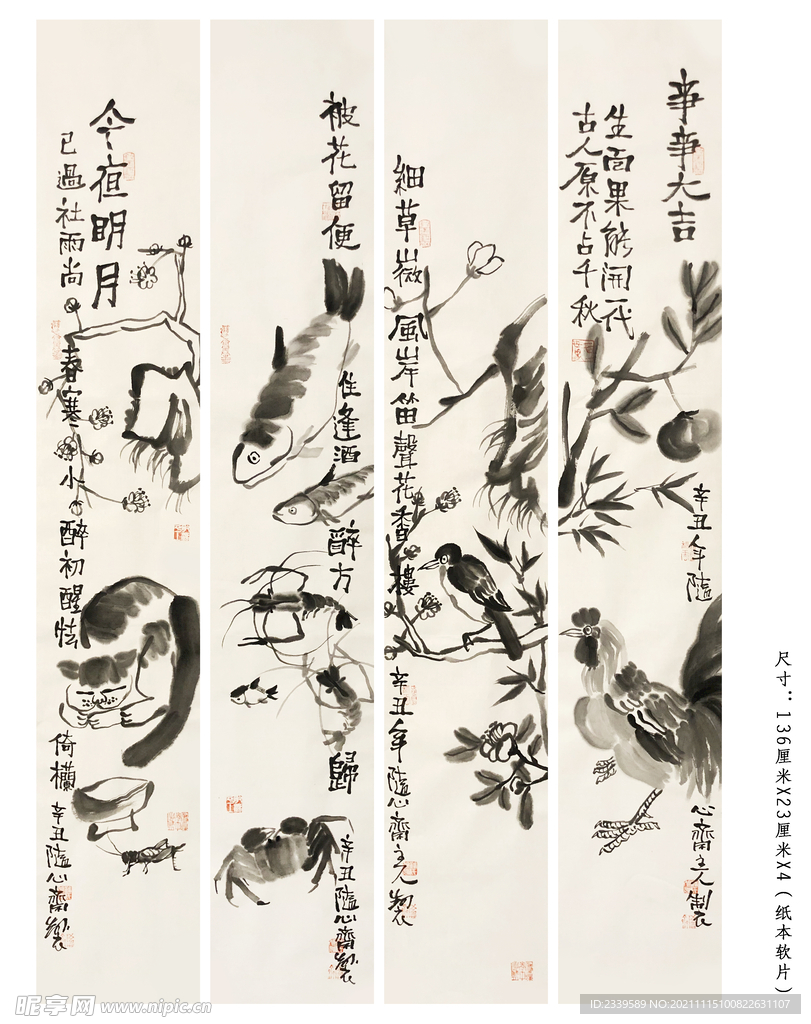 事事大吉
生面果能開一代
古人原不占千秋
辛丑年隨
心齋主人製
細草微風岸笛聲花香樓
辛丑年隨心齋主人製
被花留便
住逢酒
醉方
歸
辛丑隨心齋製
今夜明月
已過社雨尚
春寒小
醉初醒怯
倚欄
辛丑隨心齋製
尺寸：136厘米X23厘米X4（纸本软片）
昵享网 www.nipic.cn
ID:2339589 NO:20211115100822631107